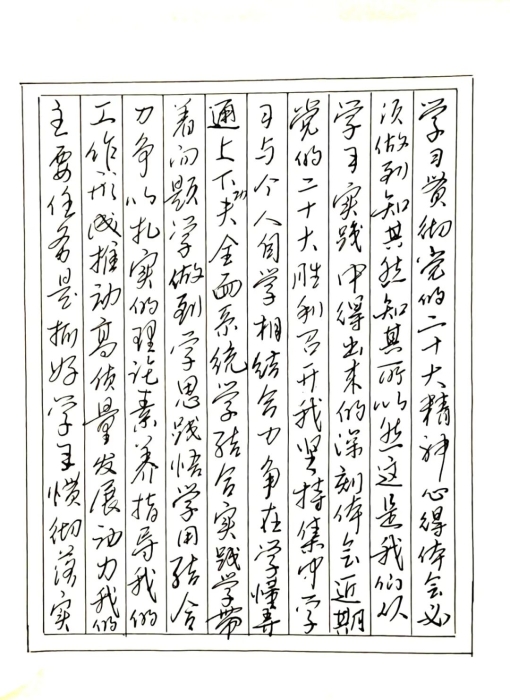 学习贯彻党的二十大精神心得体会必
须做到知其然知其所以然这是我们从
学习实践中得出来的深刻体会近期
党的二十大胜利召开我坚持集中学
习与个人自学相结合力争在学懂弄
通上下功夫全面系统学结合实践学带
着问题学做到学思践悟学用结合
力争以扎实的理论素养指导我的
工作形成推动高质量发展动力我的
主要任务是抓好学习惯彻落实